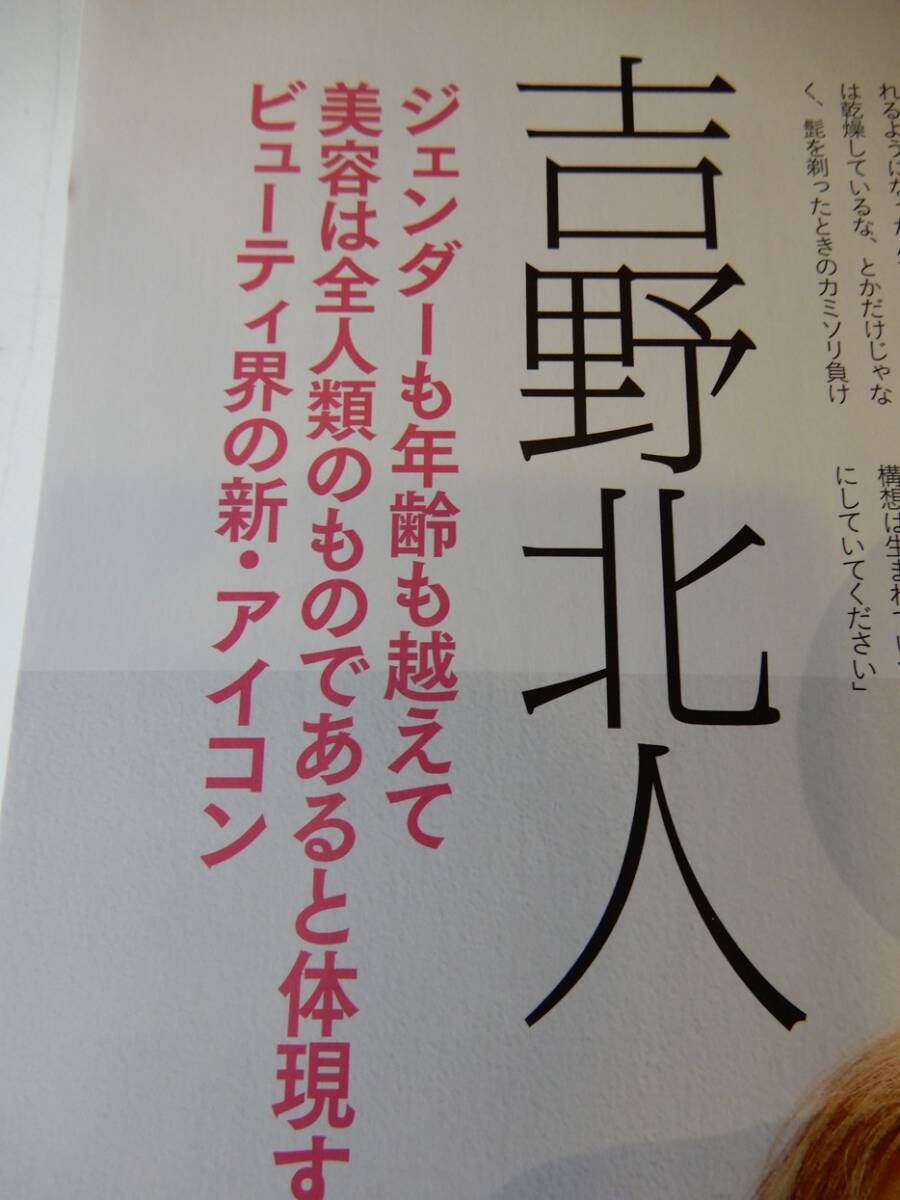 は乾燥しているな、とかだけじゃな
く、髭を剃ったときのカミソリ負け
にしていてください」
吉野北人
ジェンダーも年齢も越えて
美容は全人類のものであると体現す
ビューティ界の新・アイコン